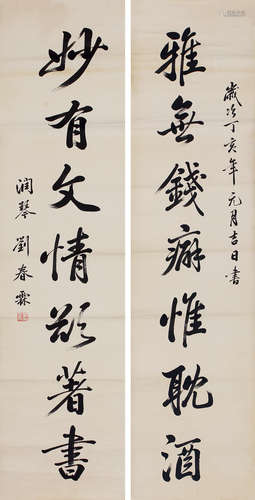 歲次丁亥年元月吉日書
雅無錢癖惟耽酒
妙有文情欲著書
潤琴劉春霖